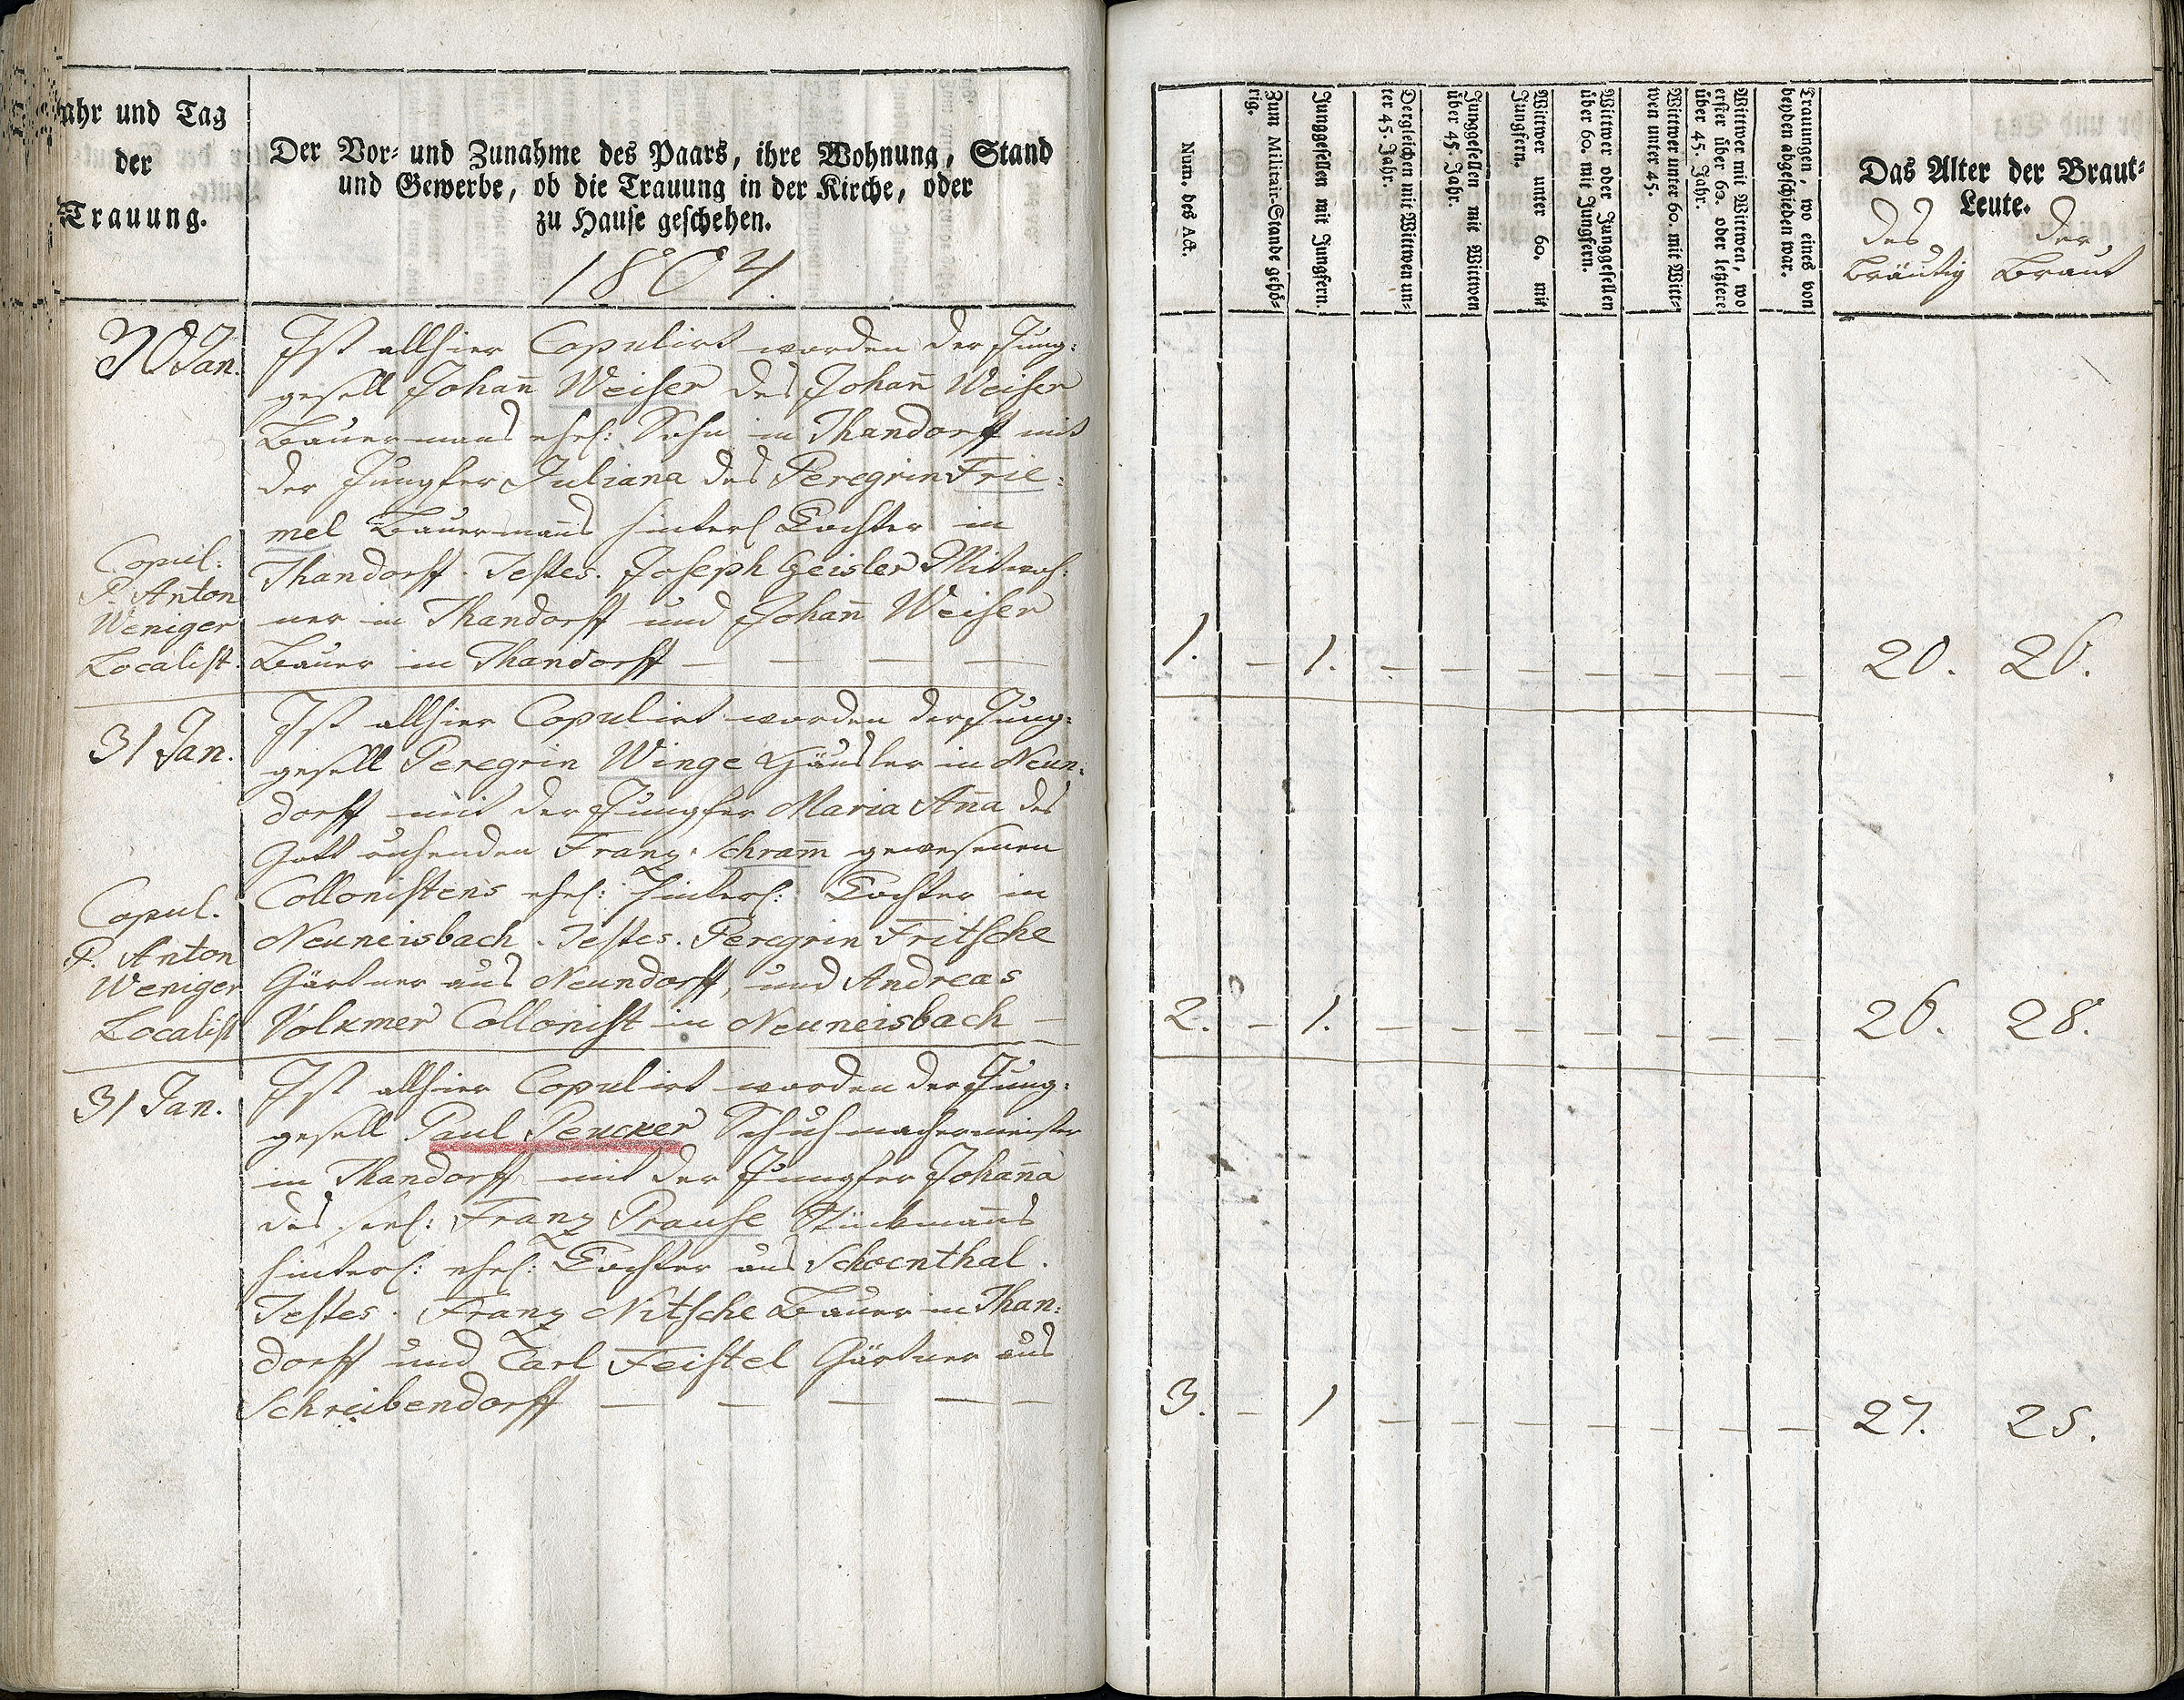 Jahr und Tag
der
Trauung.
Der Vor- und Zunahme des Paars, ihre Wohnung, Stand
und Gewerbe, ob die Trauung in der Kirche, oder
zu Hause geschehen.
1804.
30 Jan.
Ist allhier Copulirt worden der Jung-
gesell Johan̄ Weiser des Johan̄ Weiser
Bauermans ehel: Sohn in Thandorff mit
der Jungfer Juliana des Peregrin Frie-
mel Bauermans hinterl Tochter in
Thandorff. Testes. Joseph Geisler Mitwoh-
ner in Thandorff und Johan̄ Weiser
Bauer in Thandorff — — — —
Copul:
P. Anton
Weniger
Localist.
31 Jan.
Ist allhier Copulirt worden der Jung-
gesell Peregrin Winge Häusler in Neun-
dorff mit der Jungfer Maria An̄a des
Gott ruhenden Franz Schram̄ gewesenen
Collonistens ehel: hinterl: Tochter in
Neuneisbach. Testes. Peregrin Fritsche
Gärtner aus Neundorff, und Andreas
Volkmer Collonist in Neuneisbach —
Copul.
P. Anton
Weniger
Localist
31 Jan.
Ist allhier Copulirt worden der Jung-
gesell Paul Peucker Schuhmachermeister
in Thandorff mit der Jungfer Johan̄a
des seel: Franz Prause Stückman̄s
hinterl: ehel: Tochter aus Schoenthal.
Testes. Franz Nitsche Bauer in Than-
dorff und Carl Feistel Gärtner aus
Schreibendorff — — — — —
Num. des Act.
Zum Militair-Stande gehö-
rig.
Junggesellen mit Jungfern.
Dergleichen mit Wittwen un-
ter 45. Jahr.
Junggesellen mit Wittwen
über 45. Jahr.
Wittwer unter 60. mit
Jungfern.
Wittwer oder Junggesellen
über 60. mit Jungfern.
Wittwer unter 60. mit Witt-
wen unter 45.
Wittwer mit Wittwen, wo
erster über 60. oder letztere
über 45. Jahr.
Trauungen, wo eines von
beyden abgeschieden war.
Das Alter der Braut-
Leute.
des der
Bräutig Braut
1. — 1. — — — — — — — 20. 26.
2. — 1. — — — — — — — 26. 28.
3. — 1 — — — — — — — 27. 25.